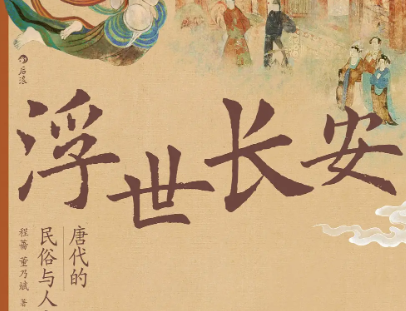 后浪
浮世长安
唐代的
民俗与人
程蔷 董乃斌 著